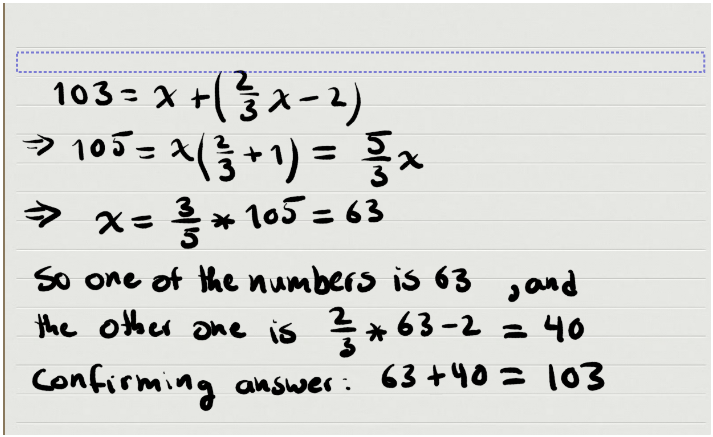 103 = x + (2/3 x - 2)
⇒ 105 = x(2/3 + 1) = 5/3 x
⇒ x = 3/5 * 105 = 63
So one of the numbers is 63 , and
the other one is 2/3 * 63 - 2 = 40
Confirming answer: 63 + 40 = 103